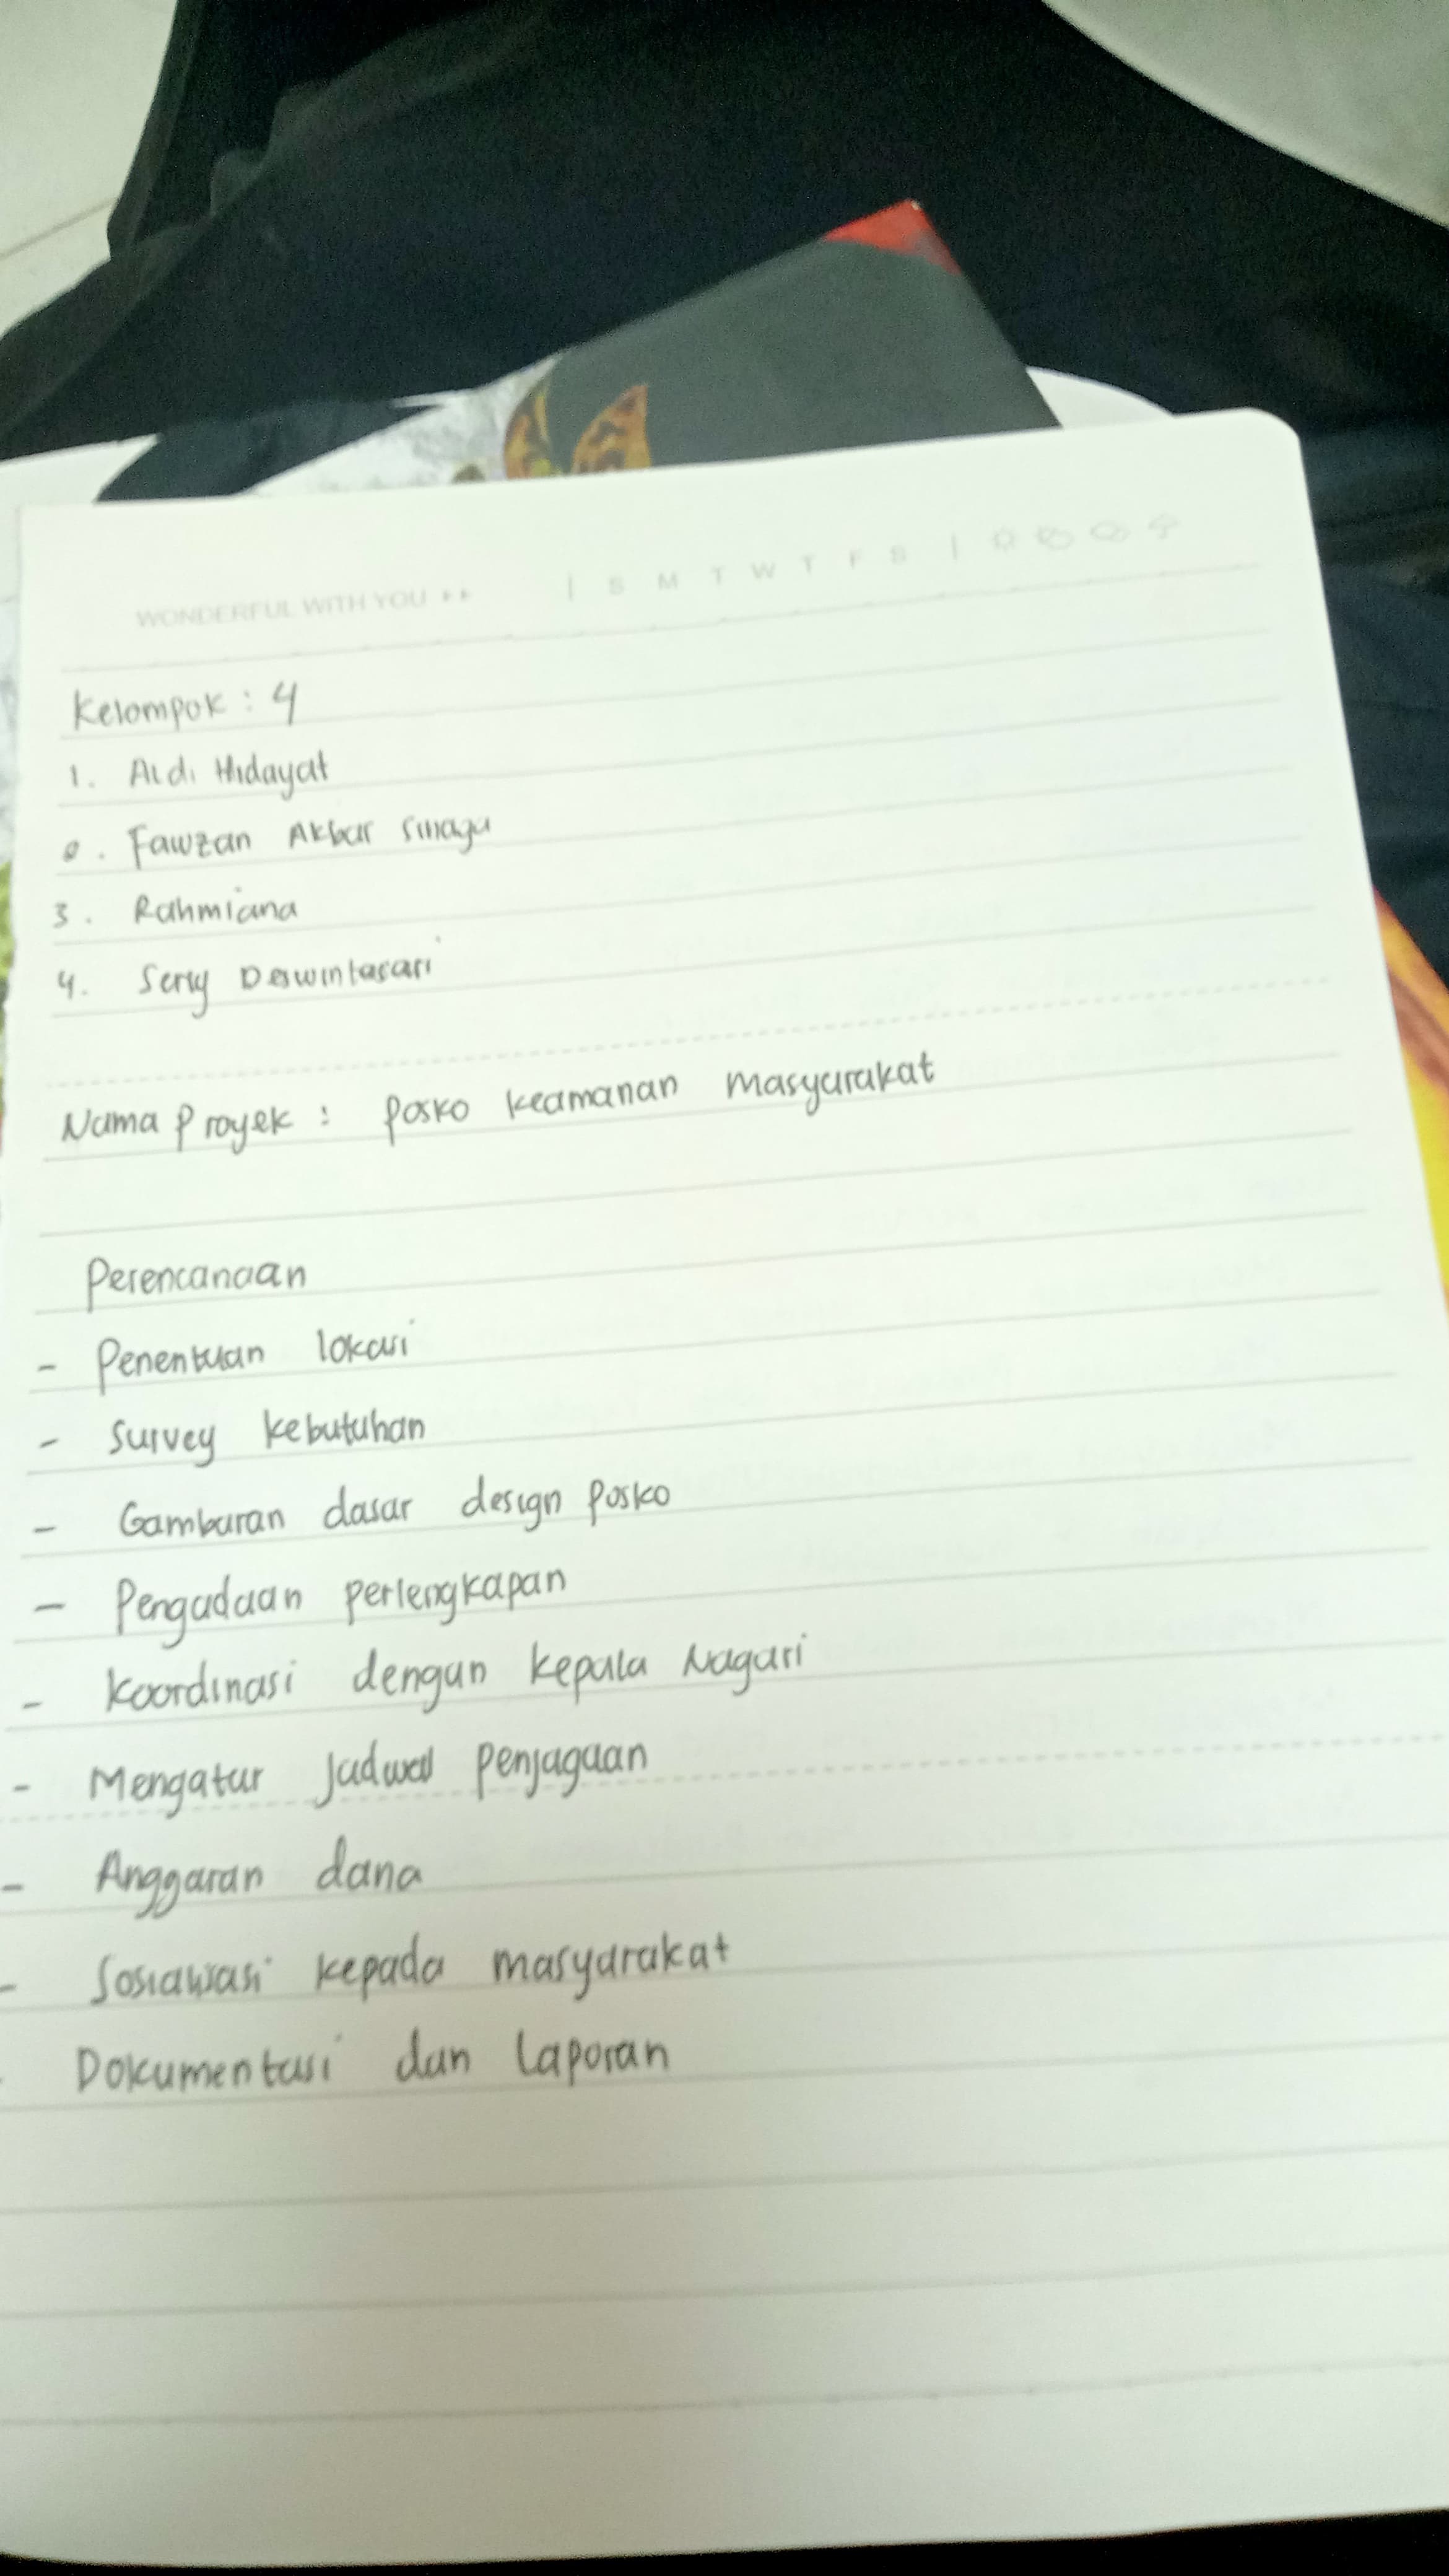 WONDERFUL WITH YOU | S M T W T F S |
Kelompok : 4
1. Aldi Hidayat
2. Fawzan Akbar Sinaga
3. Rahmiana
4. Serly Deswintasari
Nama Proyek : Posko keamanan Masyarakat
Perencanaan
- Penentuan lokasi
- Survey kebutuhan
- Gambaran dasar design posko
- Pengadaan perlengkapan
- Koordinasi dengan kepala Nagari
- Mengatur jadwal penjagaan
- Anggaran dana
- Sosialisasi kepada masyarakat
- Dokumentasi dan laporan